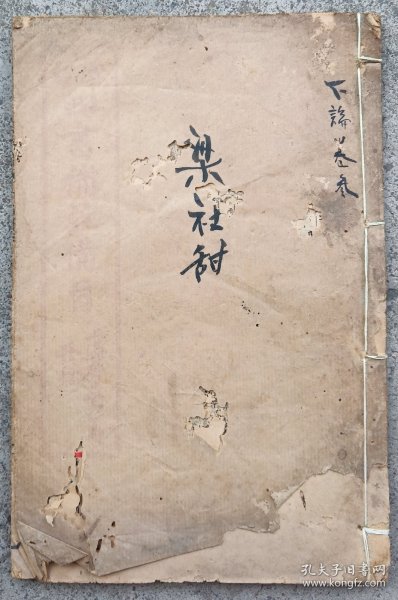 下論
梁社甜
孔夫子旧书网
www.kongfz.com